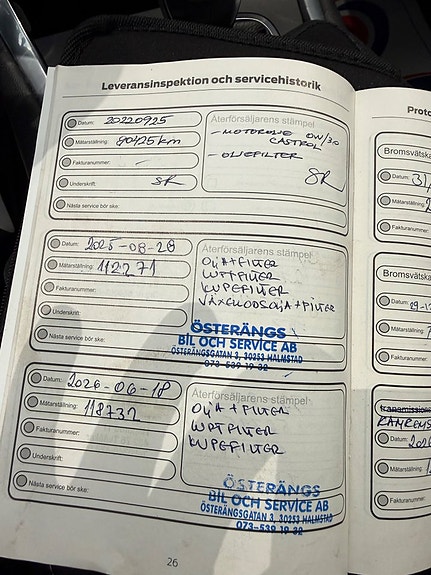 Leveransinspektion och servicehistorik
Datum: 20220925
Mätarställning: 90425 km
Fakturanummer: -
Underskrift: SR
Nästa service bör ske:
Återförsäljarens stämpel
- MOTOROLJE 0W/30
CASTROL
- OLJEFILTER
SR
Datum: 2025-08-28
Mätarställning: 112271
Fakturanummer:
Underskrift:
Nästa service bör ske:
Återförsäljarens stämpel
OLJA + FILTER
LUFTFILTER
KUPEFILTER
VÄXELLÅDSOLJA + FILTER
ÖSTERÄNGS
BIL OCH SERVICE AB
ÖSTERÄNGSGATAN 3, 30253 HALMSTAD
073-539 19 32
Datum: 2026-06-18
Mätarställning: 118732
Fakturanummer:
Underskrift:
Nästa service bör ske:
Återförsäljarens stämpel
OLJA + FILTER
LUFTFILTER
KUPEFILTER
ÖSTERÄNGS
BIL OCH SERVICE AB
ÖSTERÄNGSGATAN 3, 30253 HALMSTAD
073-539 19 32
26
Proto
Bromsvätska
Datum:
Mätarställning:
Fakturanummer
Bromsvätska
Datum:
Mätarställning:
Fakturanummer
Datum:
Mätarställning:
Fakturanummer